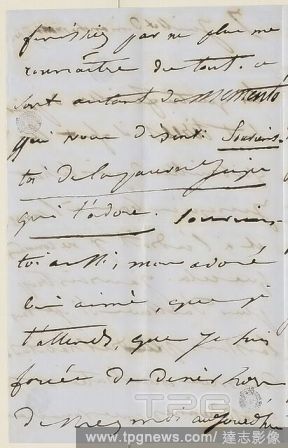 finissiez par ne plus me
connaître du tout. ce
sont autant de Memento
qui nous disent: Souviens-
toi de la pauvre Juju
qui t'adore. Souviens-
toi aussi, mon adoré
bien aimé, que je
t'attends, que je suis
forcée de
de mes aujourd'hui
TPG
www.tpgnews.com / 達志影像